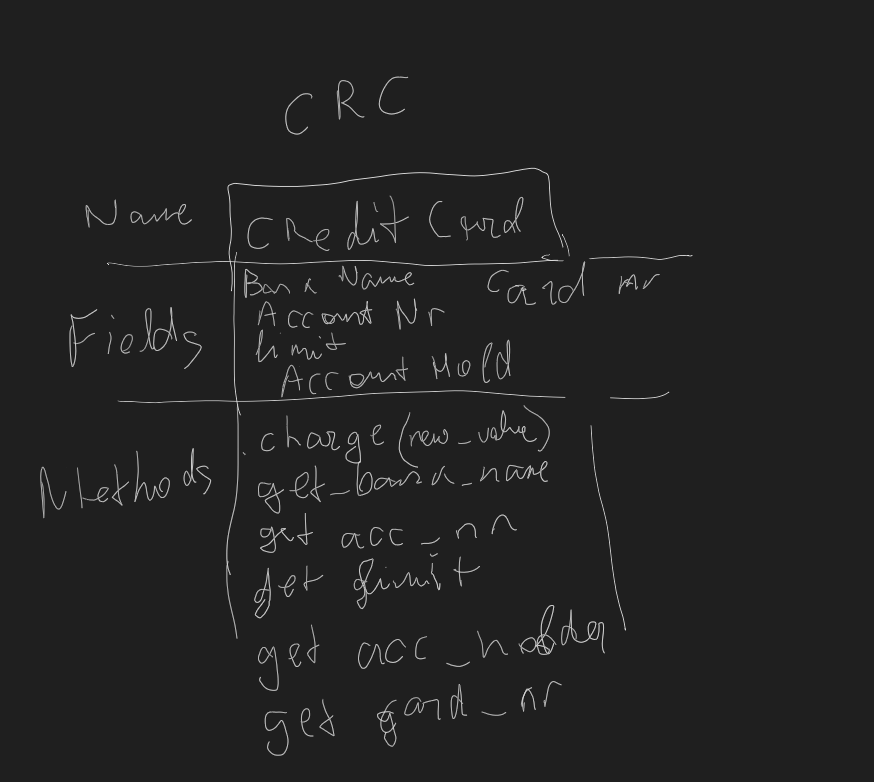 CRC
Name
Credit Card
Fields
Bank Name
Card nr
Account Nr
limit
Account Hold
Methods
charge (new_value)
get_bank_name
get acc_nr
get limit
get acc_holder
get card_nr